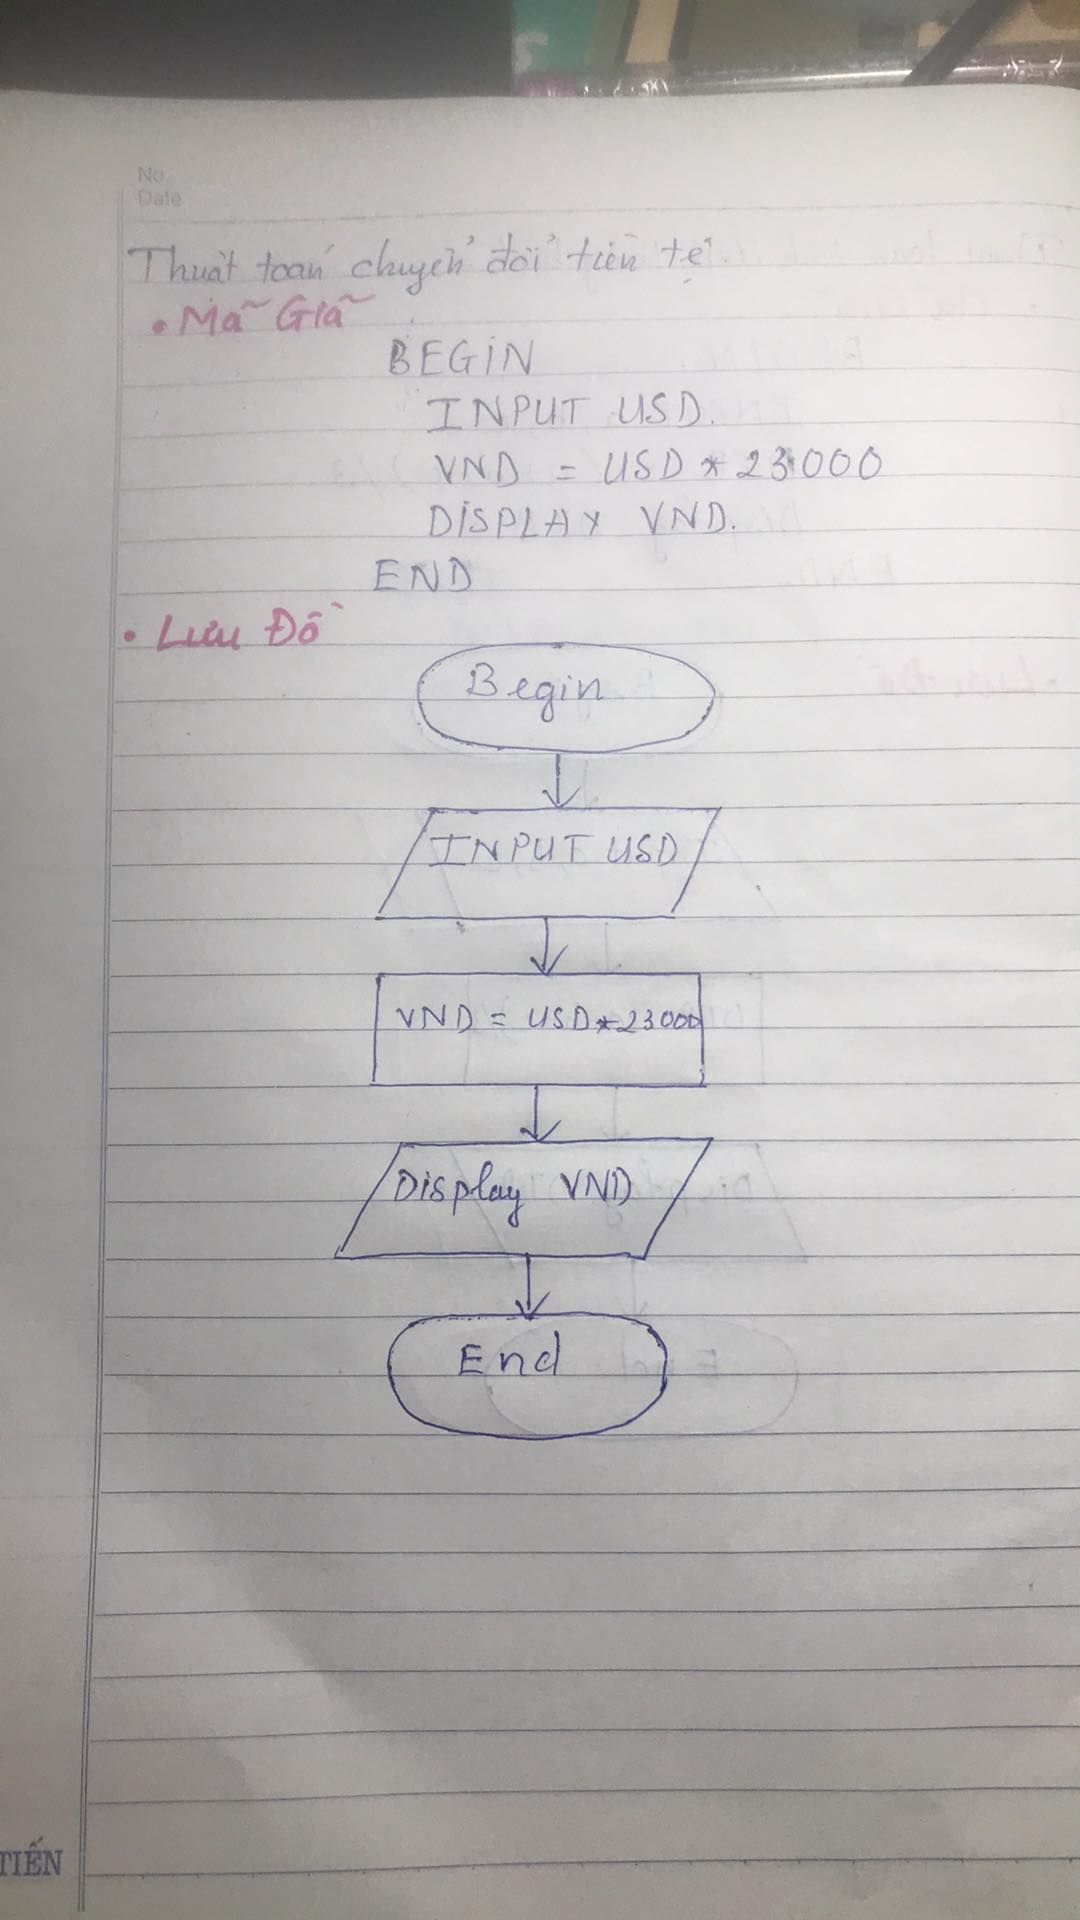 No.
Date
Thuật toán chuyển đổi tiền tệ
• Mã Giã
BEGIN
INPUT USD.
VND = USD * 23000
DISPLAY VND.
END
• Lưu Đồ
Begin
INPUT USD
VND = USD * 23000
Display VND
End
TIẾN